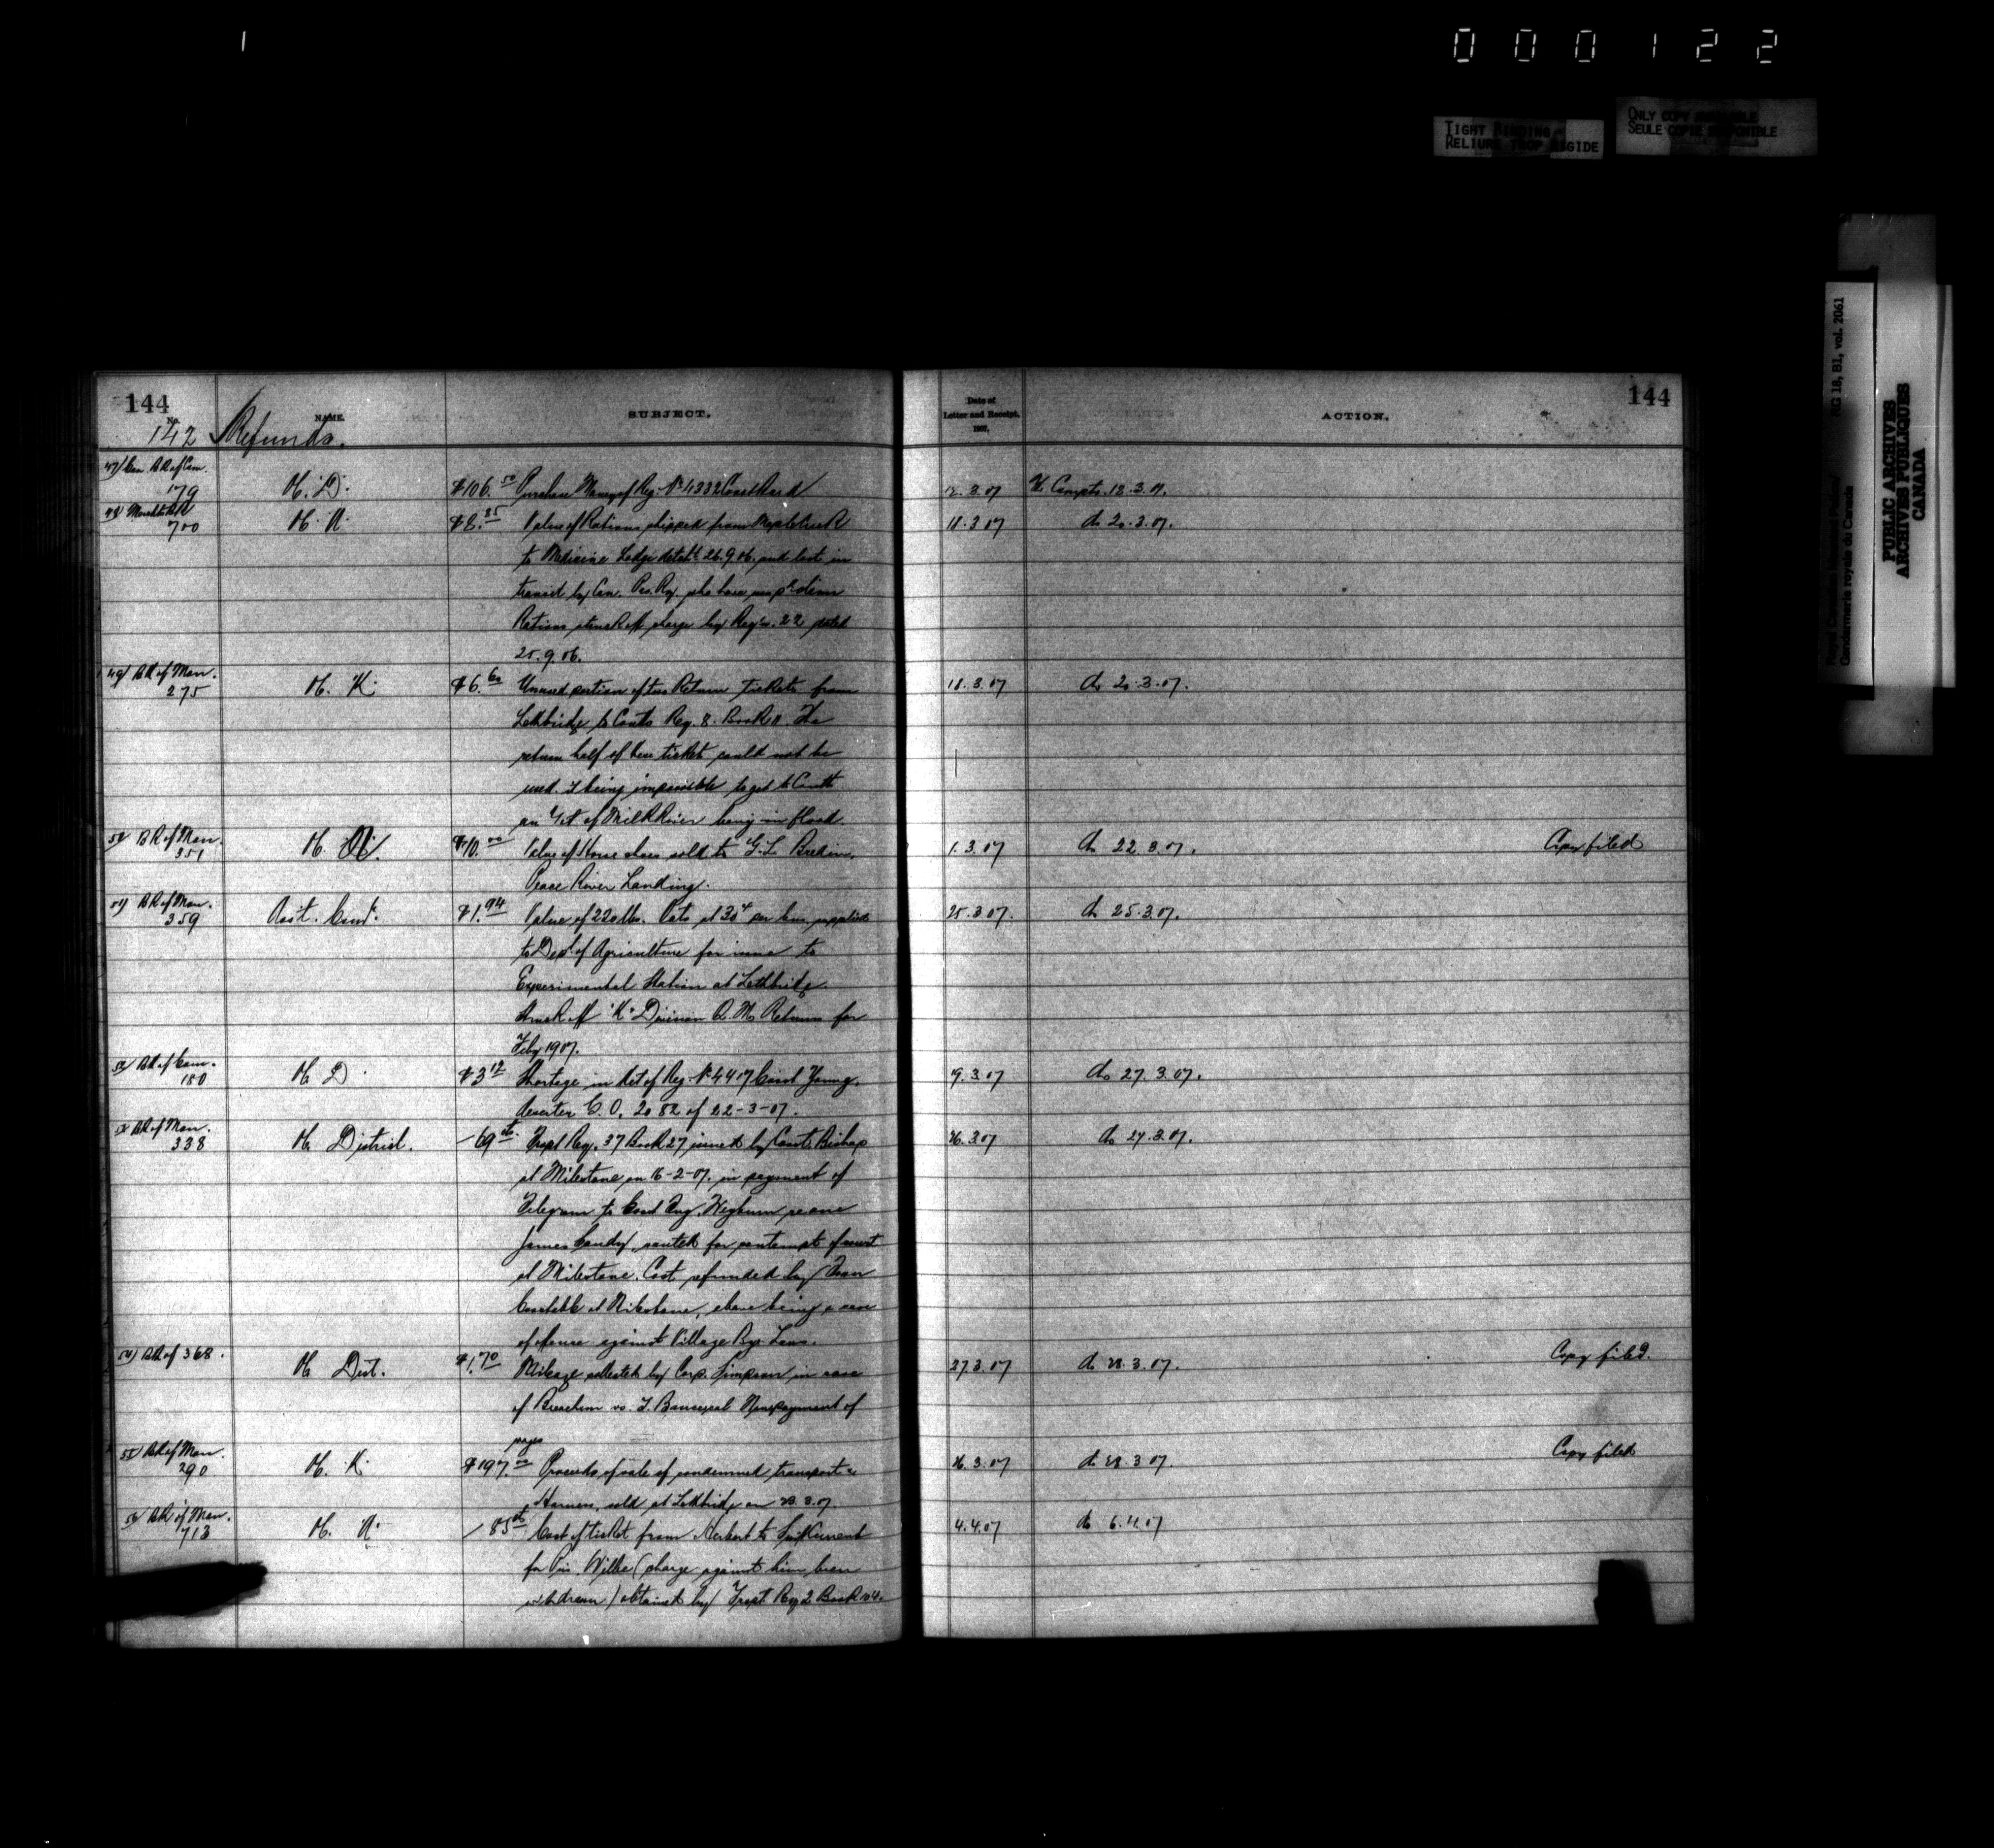 000122
TIGHT BINDING
RELIURE TROP RIGIDE
ONLY COPY AVAILABLE
SEULE COPIE DISPONIBLE
RG 18, B1, vol. 2061
Royal Canadian Mounted Police/
Gendarmerie royale du Canada
PUBLIC ARCHIVES
ARCHIVES PUBLIQUES
CANADA
144
No.
142
Refunds.
NAME.
SUBJECT.
Date of
Letter and Receipt.
1907.
ACTION.
144
179 D. $106. Purchase Money of Reg. No 4332 Const 12.3.07 Compts. 18.3.07.
700 $8.35 Value of Rations shipped from Maple Creek 18.3.07 do 20.3.07.
to Medicine Lodge detcht 26.9.06. and lost in
transit by Can. Pac. Ry. who have
Rations struck off charge by Reqn. 22 dated
25.9.06.
49/ BR of Man.
275 K. $6.60 Unused portion of two Return Tickets from 18.3.07 do 20.3.07.
Lethbridge to Coutts Req. 8. Book 11. The
return half of these tickets could not be
used. It being impossible to get to Coutts
on of Milk River being in flood.
BR of Man.
351 $10.00 Value of Horse shoes sold to G.L. Bredin, 1.3.07 do 22.3.07. Copy filed
Peace River Landing.
51/ BR of Man.
359 Asst. Comt. $1.94 Value of 220 lbs. Oats at 30¢ per bus, supplied 25.3.07. do 25.3.07.
to Dept of Agriculture for issue to
Experimental Station at Lethbridge.
Struck off "K" Division Q. M. Returns for
Feby 1907.
180 D. $3.12 Shortage in Kit of Reg. No 4417 Const Young, 19.3.07 do 27.3.07.
deserter G.O. 2082 of 22-3-07.
BR of Man.
338 District. 69 cts. Trspt Req. 37 Book 27 issued by Const. Bishop 26.3.07 do 27.3.07.
at Milestone on 16-2-07. in payment of
Telegram to Const Weyburn re one
James wanted for contempt of court
at Milestone. Cost refunded by Town
Constable at Milestone, above being a case
of offence against Village Bye Laws.
54) BR of 368. Dist. $1.70 Mileage collected by Corp. Simpson in case 27.3.07 do 28.3.07. Copy filed.
of vs. Nonpayment of
wages
55/ BR of Man.
290 K. $197. Proceeds of sale of condemned transport & 26.3.07 do 28.3.07. Copy filed
Harness, sold at Lethbridge on 23.3.07
56/ BR of Man.
713 85 cts Cost of ticket from Herbert to Swift Current 4.4.07 do 6.4.07
for Pris. Wilke (charge against him been
withdrawn) obtained by Trspt. Req 2 Book 104.